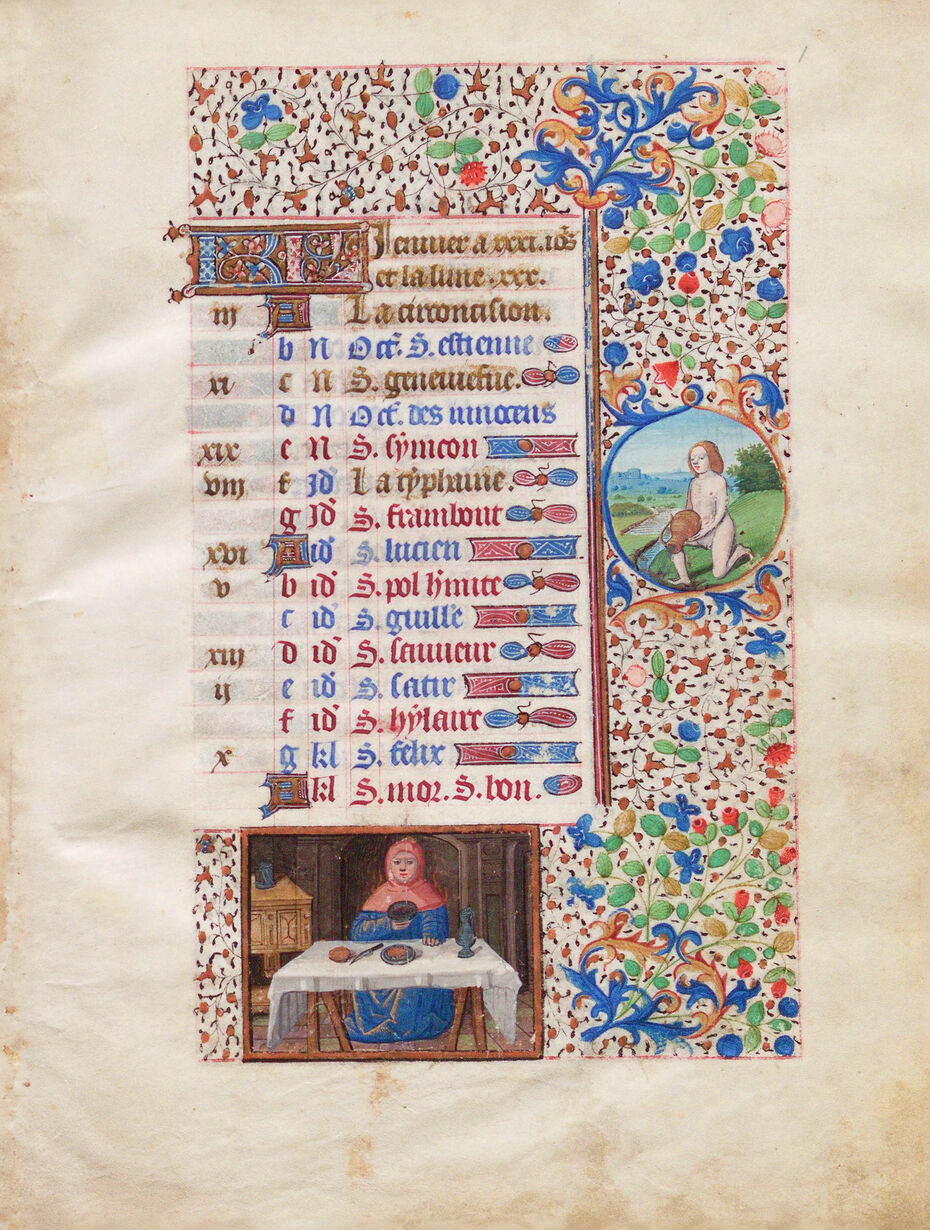 KL Jenuier a xxxi. io's
et la lune .xxx.
iij A La circoncision.
b N Oct. S. estienne
xi c N S. geneuiefue.
d N Oct. des innocens
xix e N S. symeon
viij f Jd La typhaine.
g Jd S. frambout
xvi A id S. lucien
v b id S. pol h'mite
c id S. guille
xiij d id S. sauueur
ij e id S. satir
f id S. hylaire
x g kl S. felix
A kl S. mor. S. bon.